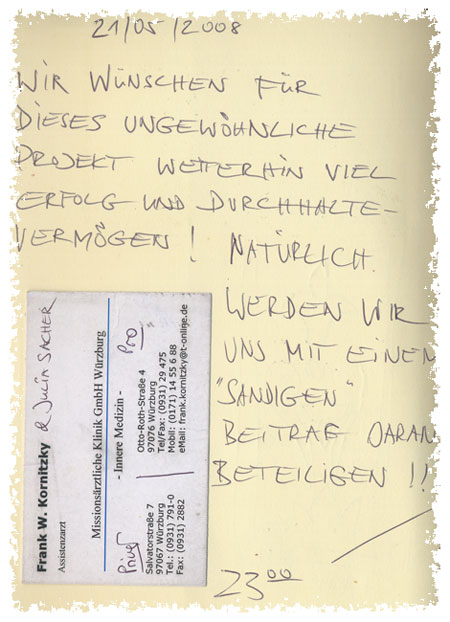 21/05/2008
WIR WÜNSCHEN FÜR
DIESES UNGEWÖHNLICHE
PROJEKT WEITERHIN VIEL
ERFOLG UND DURCHHALTE-
VERMÖGEN! NATÜRLICH
WERDEN WIR
UNS MIT EINEM
"SANDIGEN"
BEITRAG DARAN
BETEILIGEN!!
23⁰⁰
Frank W. Kornitzky & JULIA SACHER
Assistenzarzt
Missionsärztliche Klinik GmbH Würzburg
- Innere Medizin -
Salvatorstraße 7
97067 Würzburg
Tel.: (0931) 791-0
Fax: (0931) 2882
Otto-Roth-Straße 4
97076 Würzburg
Tel/Fax: (0931) 29 475
Mobil: (0171) 14 55 6 88
eMail: frank.kornitzky@t-online.de